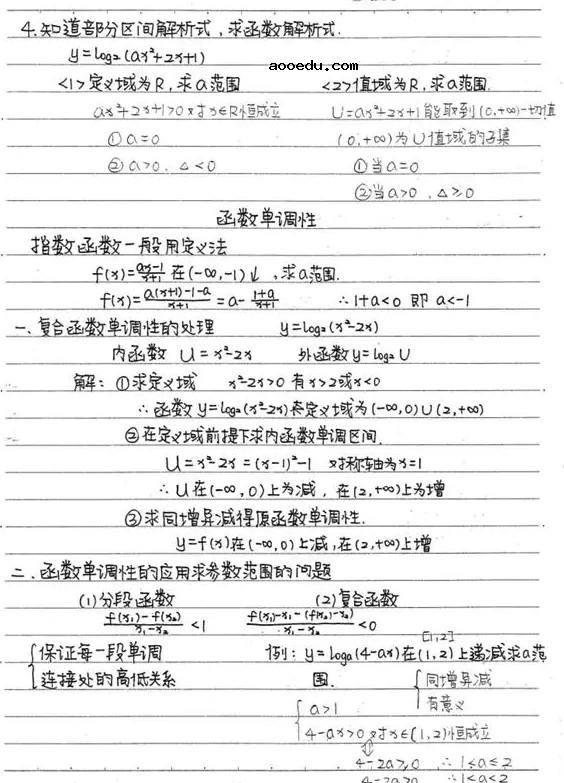 4.知道部分区间解析式,求函数解析式.
y=log₂(ax²+2x+1)
aooedu.com
<1>定义域为R,求a范围 <2>值域为R,求a范围.
ax²+2x+1>0对x∈R恒成立 U=ax²+2x+1能取到(0,+∞)一切值
①a=0 (0,+∞)为U值域的子集
②a>0,△<0 ①当a=0
②当a>0,△≥0
函数单调性
指数函数一般用定义法
f(x)=(ax-1)/(x+1) 在(-∞,-1)↓,求a范围.
f(x)=(a(x+1)-1-a)/(x+1)=a-(1+a)/(x+1) ∴1+a<0 即 a<-1
一、复合函数单调性的处理 y=log₂(x²-2x)
内函数 U=x²-2x 外函数y=log₂U
解:①求定义域 x²-2x>0 有x>2或x<0
∴函数y=log₂(x²-2x)定义域为(-∞,0)∪(2,+∞)
②在定义域前提下求内函数单调区间.
U=x²-2x=(x-1)²-1 对称轴为x=1
∴U在(-∞,0)上为减,在(2,+∞)上为增
③求同增异减得原函数单调性.
y=f(x)在(-∞,0)上减,在(2,+∞)上增
二.函数单调性的应用求参数范围的问题
(1)分段函数 (2)复合函数
(f(x₁)-f(x₂))/(x₁-x₂)<1 (f(x₁)-x₁-(f(x₂)-x₂))/(x₁-x₂)<0
[1,2]
{保证每一段单调 例:y=logₐ(4-ax)在(1,2)上递减求a范
连接处的高低关系 围. {同增异减
有意义
{a>1
4-ax>0对x∈(1,2)恒成立
⇕
4-2a≥0 ∴1<a≤2
4-2a>0 ∴1<a<2